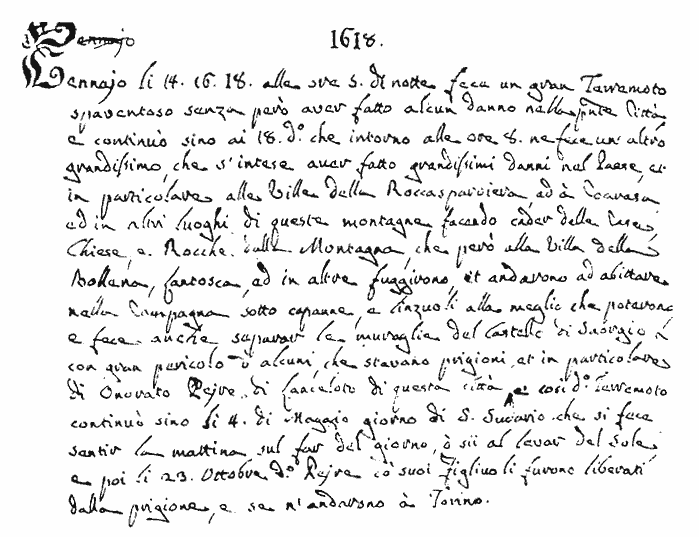 Gennajo 1618.
Gennajo li 14. 16. 18. alle ore 5. di notte fece un gran Terremoto
spaventoso senza però aver fatto alcun danno nella pnte Città
e continuò sino ai 18. d.º che intorno alle ore 8. ne fece un' altro
grandissimo, che s'intese aver fatto grandissimi danni nel Paese, et
in particolare alle Ville della Roccasparviera, ad à Coarasa
ed in altri luoghi di queste montagne facendo cader delle Case,
Chiese, e Rocche dalla Montagna, che però alla Villa della
Bollena, Lantosca, ad in altre fuggirono, et andarono ad abittare
nella Campagna sotto capanne, e linzuoli alla meglio che potevano
e fece anche separar le muraglie del Castello di Saorgio
con gran pericolo d'alcuni, che stavano prigioni, et in particolare
di Onorato Pejre di Lanceloto di questa città, e così d.º Terremoto
continuò sino li 4. di Maggio giorno di S. Sudario che si fece
sentir la mattina sul far del giorno, ò sii al levar del Sole,
e poi li 23. Ottobre d.º Pejre cò suoi figliuoli furono liberati
dalla prigione, e se n'andarono à Torino.